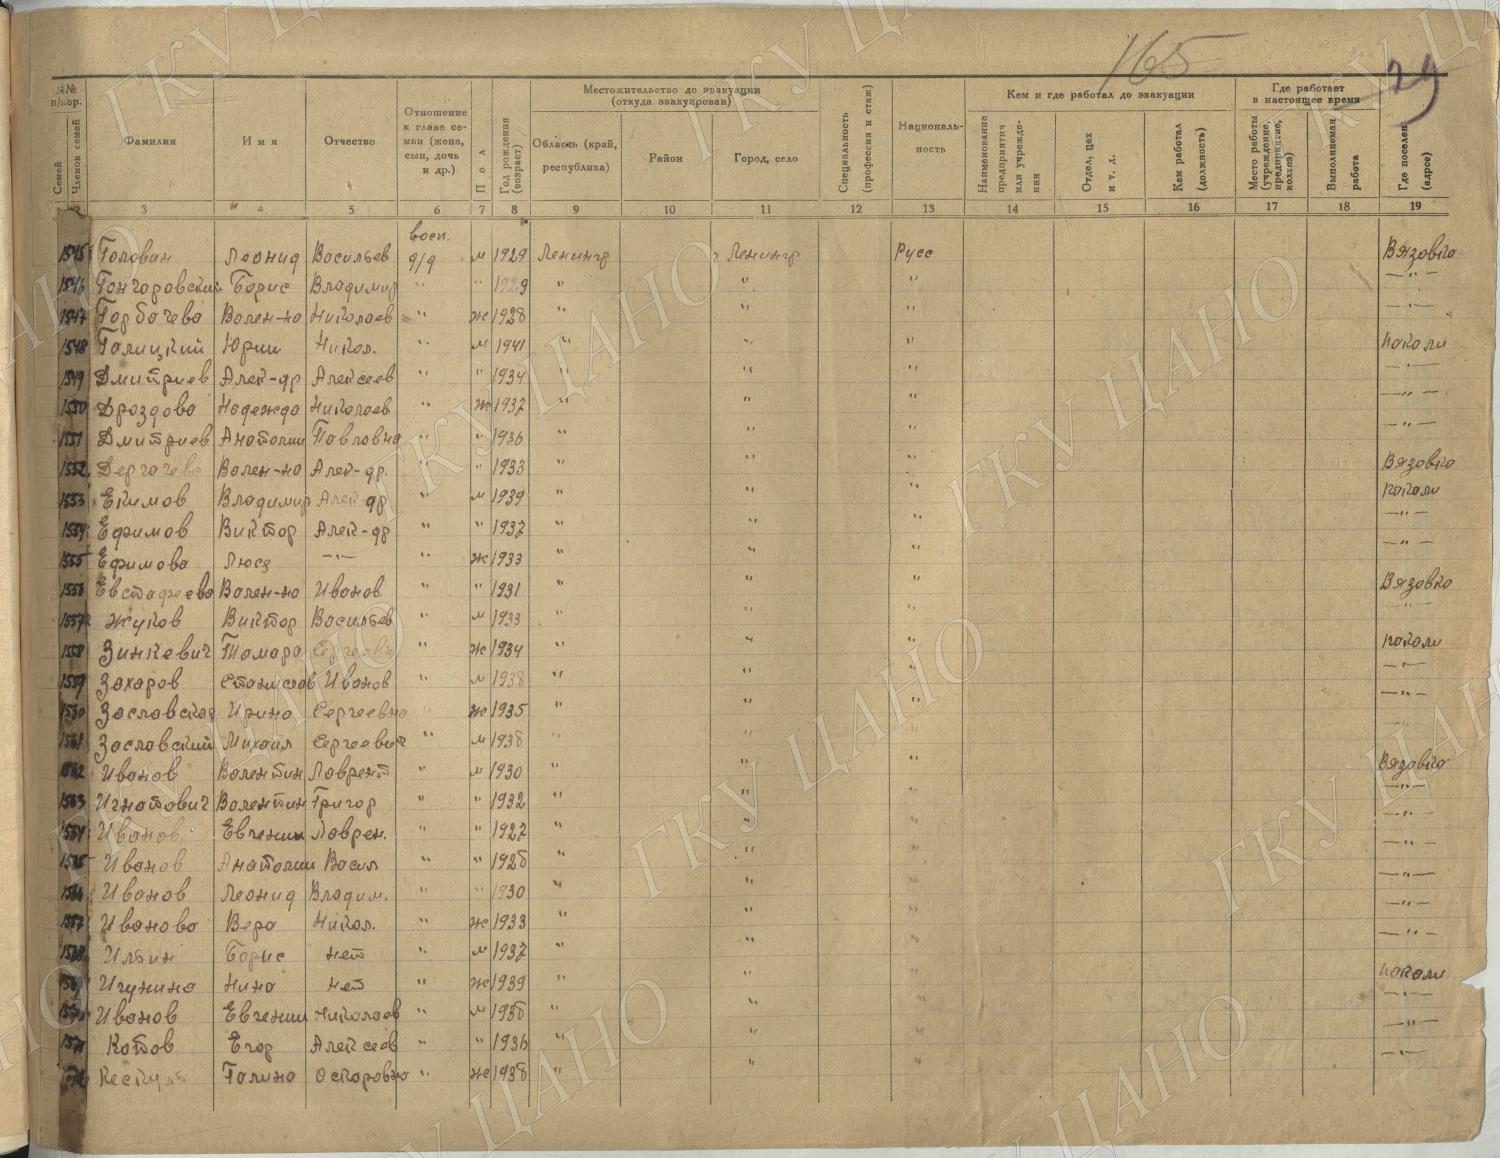 165
29
№№ п/пор.
Местожительство до эвакуации (откуда эвакуирован)
Кем и где работал до эвакуации
Где работает в настоящее время
Семей
Членов семей
Фамилия
Имя
Отчество
Отношение к главе семьи (жена, сын, дочь и др.)
Пол
Год рождения (возраст)
Область (край, республика)
Район
Город, село
Специальность (профессия и стаж)
Националь-ность
Наименование предприятия или учрежде-ния
Отдел, цех и т. д.
Кем работал (должность)
Место работы (учреждение, предприятие, колхоз)
Выполняемая работа
Где поселен (адрес)
2 3 4 5 6 7 8 9 10 11 12 13 14 15 16 17 18 19
восп.
1545 Голован Леонид Васильев д/д м 1929 Ленингр Ленингр Русс Вязовка
1546 Гончаровский Борис Владимир " " 1929 " " " —"—
1547 Горбачева Вален-на Николаев " ж 1928 " " " —"—
1548 Галицкий Юрий Никол. " м 1941 " " " Какали
1549 Дмитриев Алек-др Алексеев " " 1934 " " " —"—
1550 Дроздова Надежда Николаев " ж 1937 " " " —"—
1551 Дмитриев Анатолий Павловна " " 1936 " " " —"—
1552 Дергачева Вален-на Алек-др. " " 1933 " " " Вязовка
1553 Екимов Владимир Алек-др " м 1939 " " " Какали
1554 Ефимов Виктор Алек-др " " 1937 " " " —"—
1555 Ефимова Люся —"— " ж 1933 " " " —"—
1556 Евстафеева Вален-на Иванов " " 1931 " " " Вязовка
1557 Жуков Виктор Васильев " м 1933 " " " —"—
1558 Зинкевич Тамара Сергеевн " ж 1934 " " " Какали
1559 Захаров Станислав Иванов " м 1938 " " " —"—
1560 Заславская Ирина Сергеевна " ж 1935 " " " —"—
1561 Заславский Михаил Сергеевич " м 1938 " " "
1562 Иванов Валентин Лаврент " м 1930 " " " Вязовка
1563 Игнатович Валентин Григор " " 1932 " " " —"—
1564 Иванов Евгений Лаврен. " " 1927 " " " —"—
1565 Иванов Анатолий Васил " " 1928 " " " —"—
1566 Иванов Леонид Владим. " " 1930 " " " —"—
1567 Иванова Вера Никол. " ж 1933 " " " —"—
1568 Ильин Борис нет " м 1937 " " " —"—
1569 Игунина Нина нет " ж 1939 " " " Какали
1570 Иванов Евгений Николаев " м 1938 " " " —"—
1571 Котов Егор Алексеев " " 1936 " " " —"—
Галина Оскаровна " ж 1938 " " " —"—
ГКУ ЦАНО